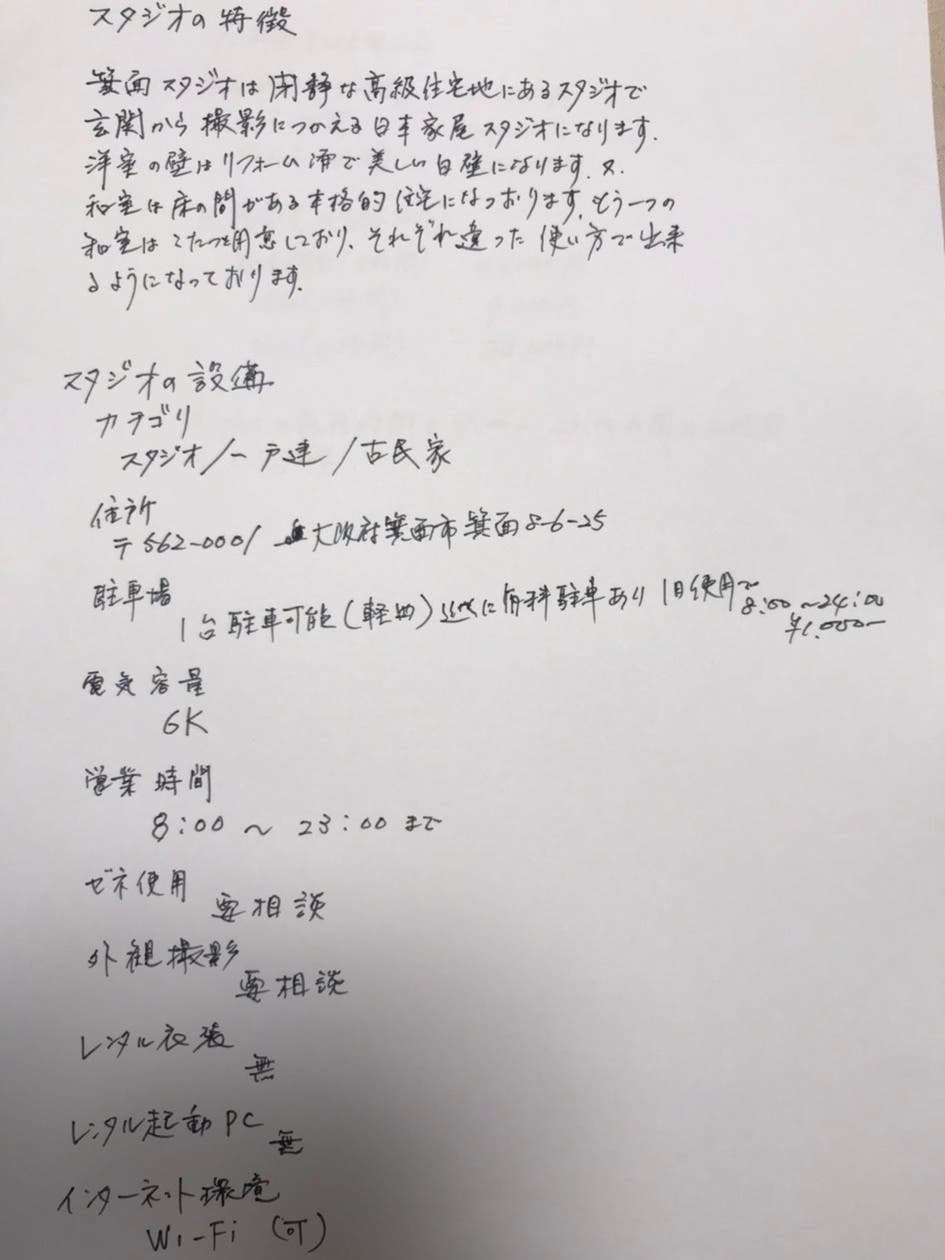 スタジオの特徴
箕面スタジオは閑静な高級住宅地にあるスタジオで
玄関から撮影につかえる日本家屋スタジオになります.
洋室の壁はリフォーム済で美しい白壁になります. 又.
和室は床の間がある本格的住宅になっおります. もう一つの
和室はこたつを用意しており、それぞれ違った使い方で出来
るようになっております.
スタジオの設備
カテゴリ
スタジオ/一戸建/古民家
住所
〒562-0001 大阪府箕面市箕面8-6-25
駐車場
1台駐車可能(軽) 近くに有料駐車あり 1日使用〜
8:00〜24:00
¥1.000ー
電気容量
6K
営業時間
8:00 〜 23:00 まで
ゼネ使用
要相談
外観撮影
要相談
レンタル衣装
無
レンタル起動PC
無
インターネット環境
Wi-Fi (可)